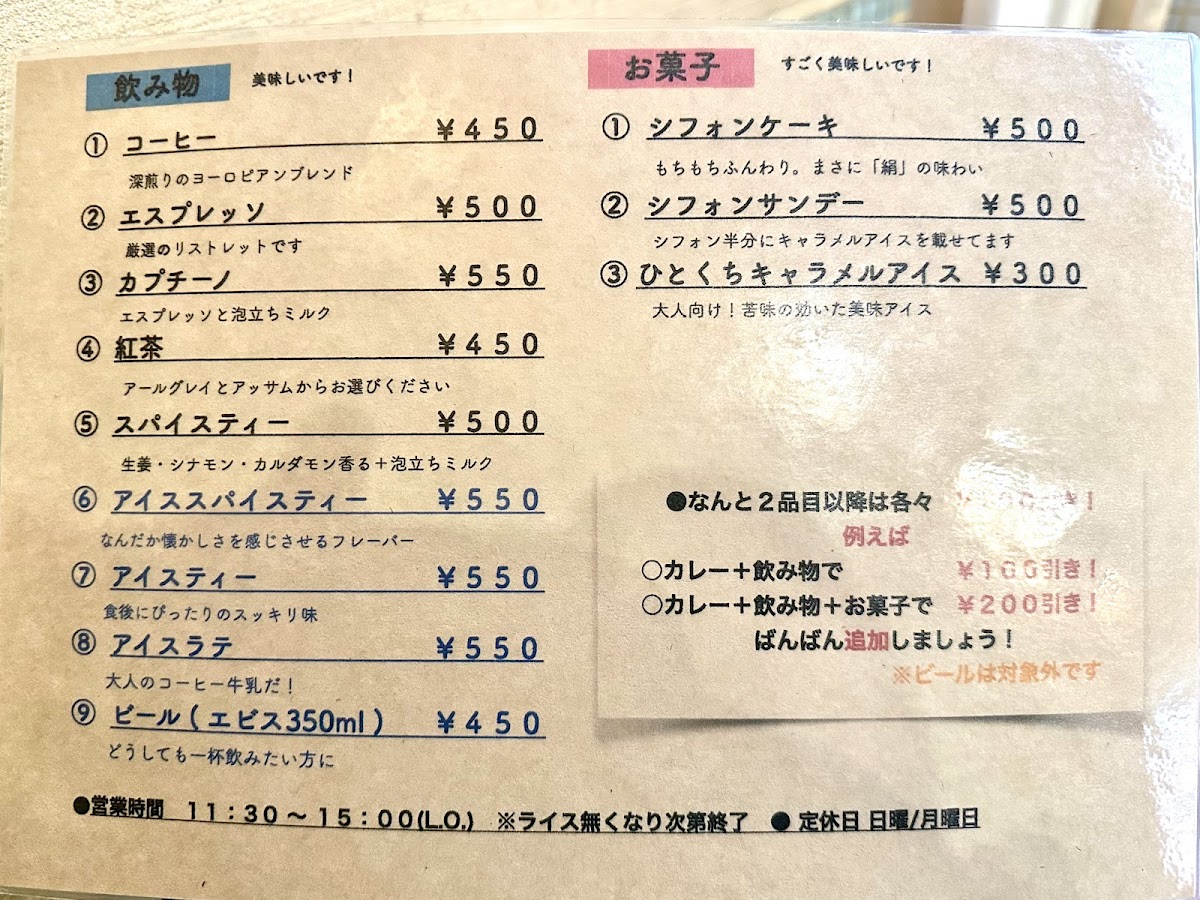 飲み物 美味しいです！
① コーヒー ￥４５０
深煎りのヨーロピアンブレンド
② エスプレッソ ￥５００
厳選のリストレットです
③ カプチーノ ￥５５０
エスプレッソと泡立ちミルク
④ 紅茶 ￥４５０
アールグレイとアッサムからお選びください
⑤ スパイスティー ￥５００
生姜・シナモン・カルダモン香る＋泡立ちミルク
⑥ アイススパイスティー ￥５５０
なんだか懐かしさを感じさせるフレーバー
⑦ アイスティー ￥５５０
食後にぴったりのスッキリ味
⑧ アイスラテ ￥５５０
大人のコーヒー牛乳だ！
⑨ ビール（エビス350ml） ￥４５０
どうしても一杯飲みたい方に
お菓子 すごく美味しいです！
① シフォンケーキ ￥５００
もちもちふんわり。まさに「絹」の味わい
② シフォンサンデー ￥５００
シフォン半分にキャラメルアイスを載せてます
③ ひとくちキャラメルアイス ￥３００
大人向け！苦味の効いた美味アイス
●なんと２品目以降は各々 ￥１００引き！
例えば
○カレー＋飲み物で ￥１００引き！
○カレー＋飲み物＋お菓子で ￥２００引き！
ばんばん追加しましょう！
※ビールは対象外です
●営業時間 １１：３０～１５：００(L.O.) ※ライス無くなり次第終了 ● 定休日 日曜/月曜日